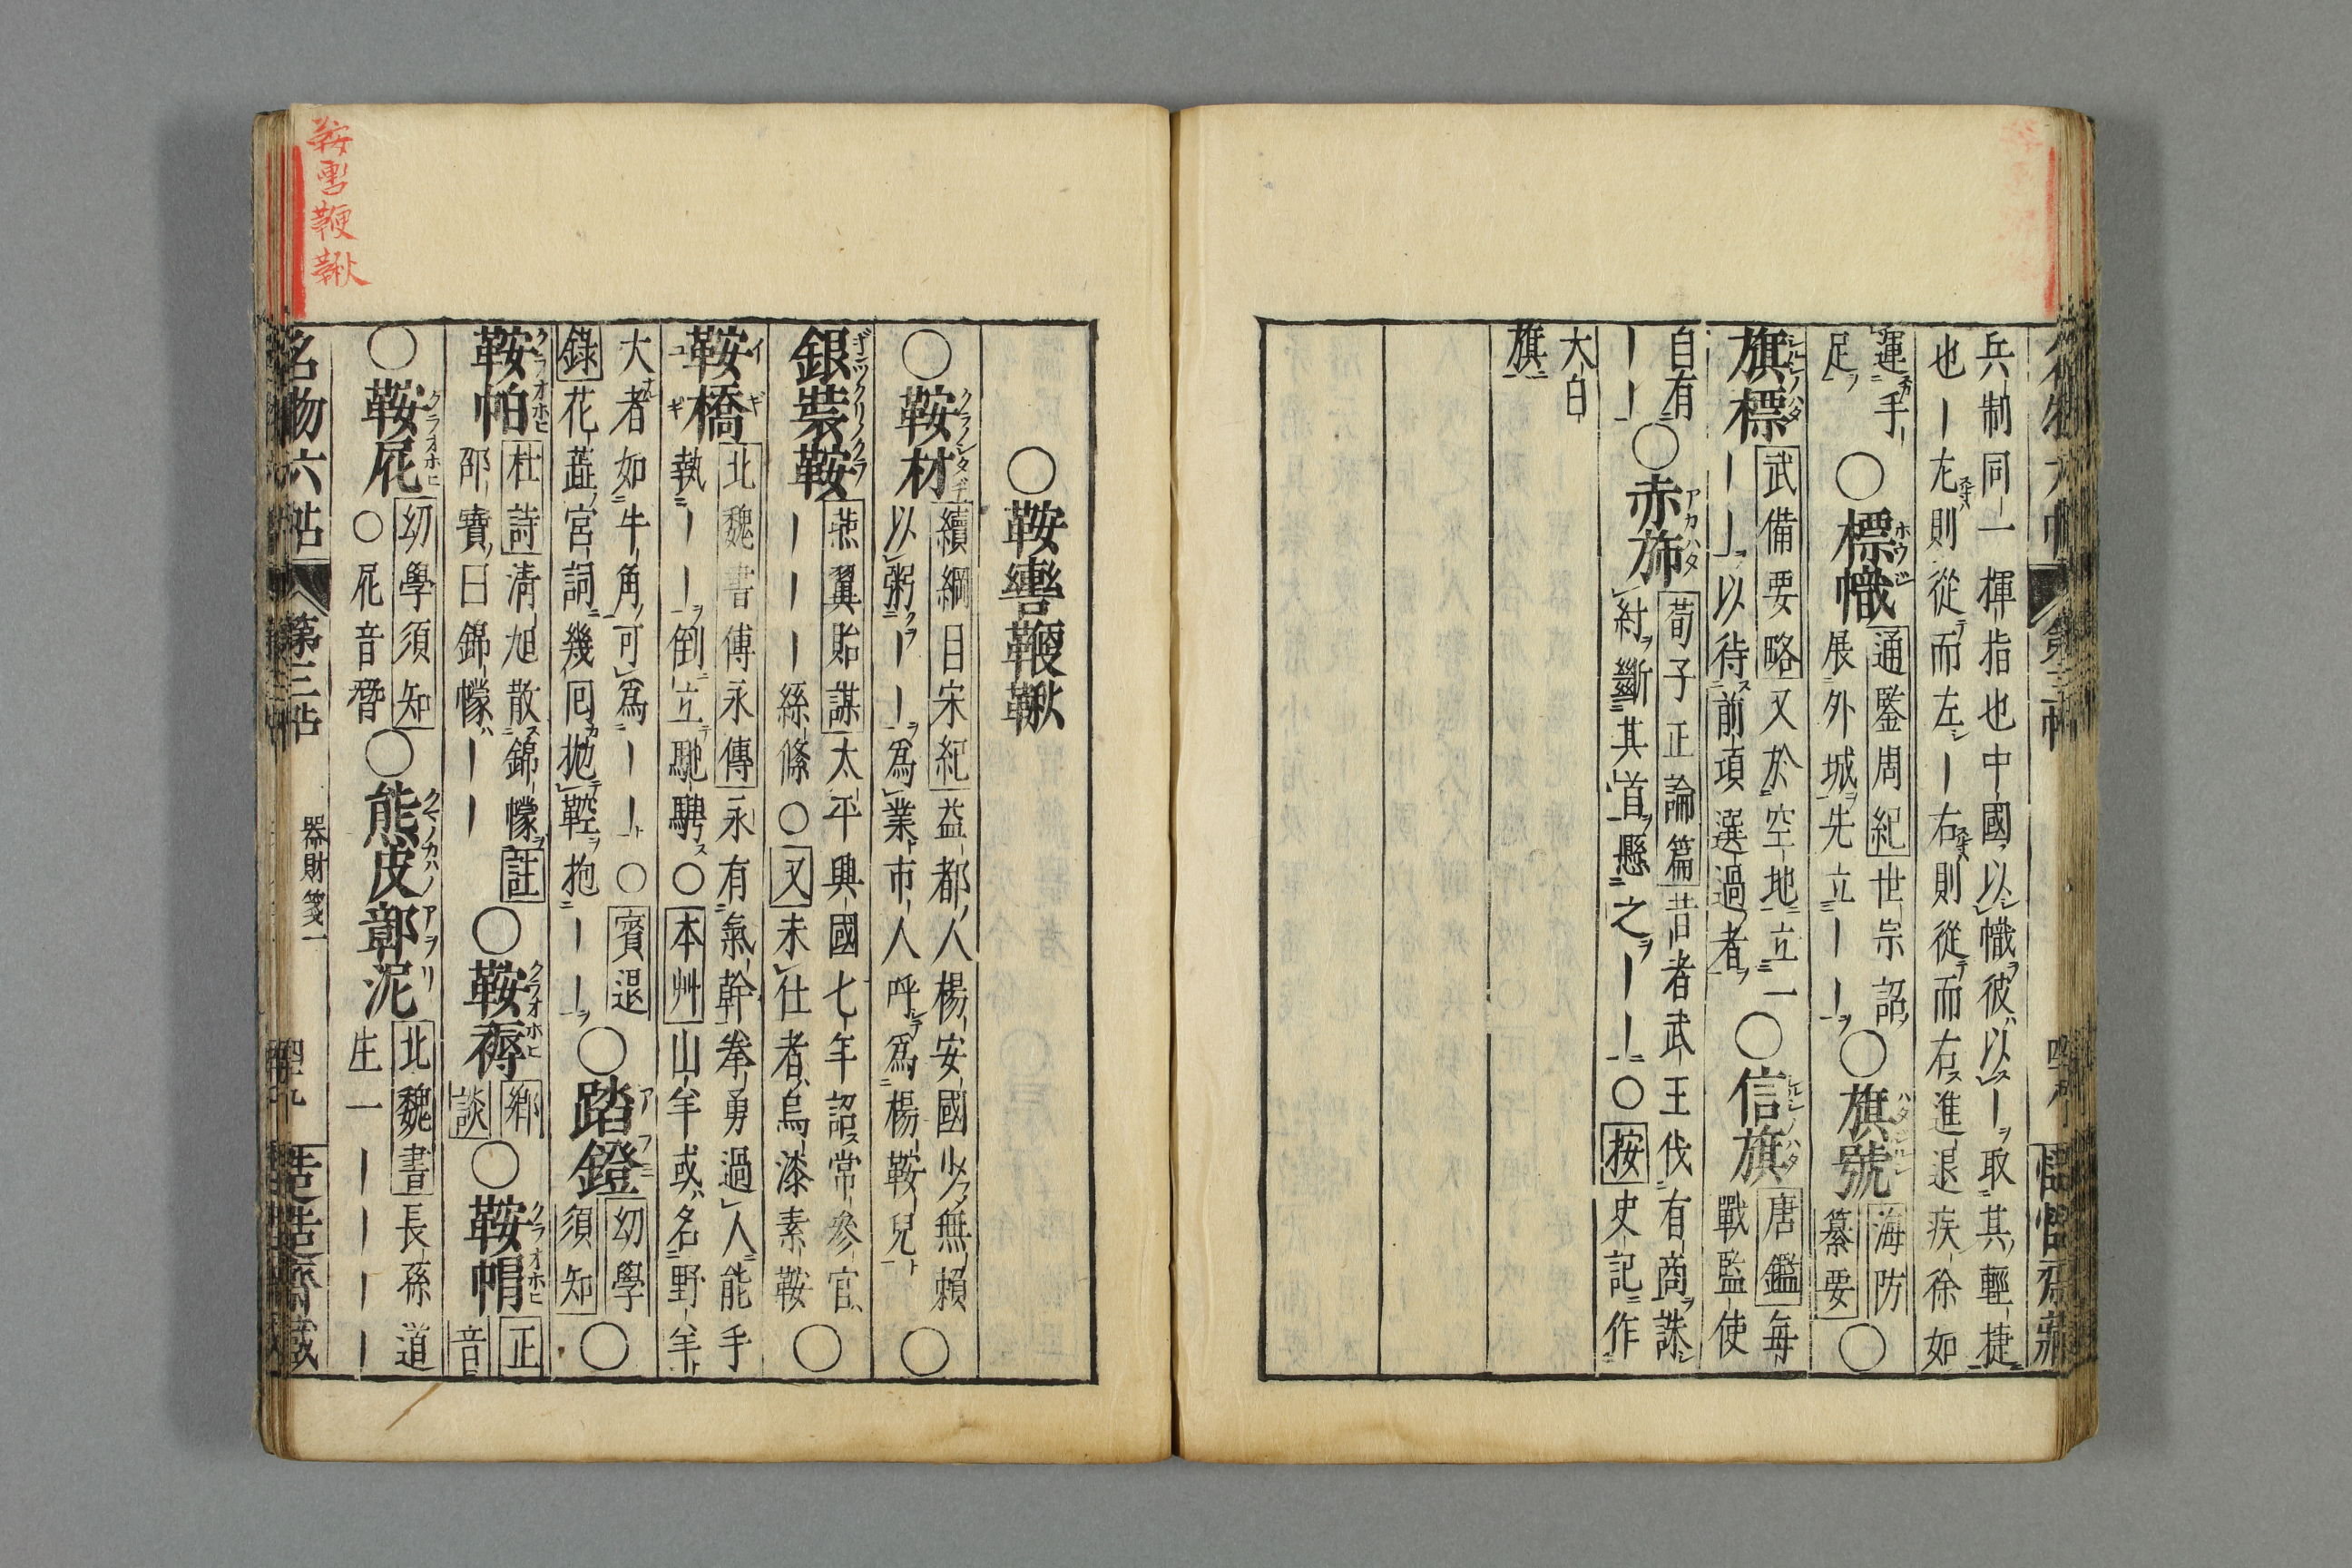 兵制同一揮指也中國以幟彼以ー取其輕捷
也ー左則從而左ー右則從而右進退疾徐如
運手
足
○標幟
通鑒周紀世宗詔
展外城先立ーー
○旗號
海防
纂要
○
旗標
武備要略又於空地立一
ーー以待前項選過者
○信旗
唐鑑每
戰監使
自有
ーー
○赤斾
荀子正論篇昔者武王伐有商誅
紂斷其首懸之ーー○按史記作
大白
旗
○鞍轡鞭鞦
○鞍材
續綱目宋紀益都人楊安國少無賴
以粥ーー爲業市人呼爲楊鞍兒
○
銀裝鞍
燕翼貽謀太平興國七年詔常參官
ーーー絲絛○又未仕者烏漆素鞍
○
鞍橋
北魏書傅永傳永有氣幹拳勇過人能手
執ーー倒立馳騁○本艸山羊或名野羊
大者如牛角可爲ーー○賓退
錄花蘂宮詞幾回抛鞚抱ーー
○踏鐙
幼學
須知
○
鞍帕
杜詩淸旭散錦幪註
邵寶曰錦幪ーー
○鞍褥
鄉
談
○鞍帩
正
音
○鞍屉
幼學須知
○屉音替
○熊皮鄣泥
北魏書長孫道
生一ーーーー
名物六帖
第三帖
器財箋一
四十九
鞍轡鞭鞦